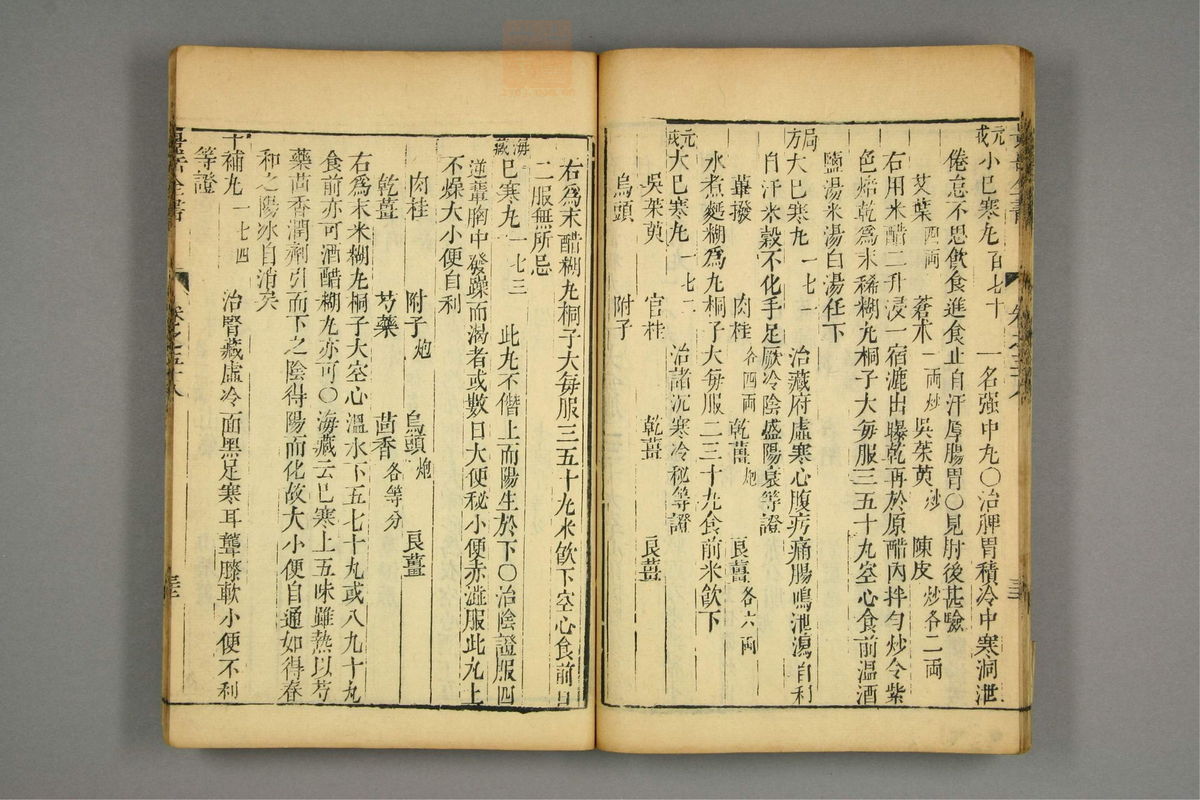 元戎
小巳寒丸百七十　一名强中丸〇治脾胃積冷中寒洞泄
倦怠不思飲食進食止自汗厚腸胃〇見肘後甚驗
艾葉四両　蒼朮一両炒　吳茱萸炒　陳皮炒各二両
右用米醋二升浸一宿漉出曝乾再於原醋內拌勻炒令紫
色焙乾爲末稀糊丸桐子大每服三五十丸空心食前溫酒
鹽湯米湯白湯任下
局方
大巳寒丸一七一　治藏府虛寒心腹疠痛腸鳴泄瀉自利
自汗米穀不化手足厥冷陰盛陽衰等證
蓽撥　肉桂各四両　乾薑炮　良薑各六両
水煮麪糊爲丸桐子大每服二三十丸食前米飲下
元戎
大巳寒丸一七二　治諸沉寒冷秘等證
吳茱萸　官桂　乾薑　良薑
烏頭　附子
右爲末醋糊丸桐子大每服三五十丸米飲下空心食前日
二服無所忌
海藏
巳寒丸一七三　此丸不僭上而陽生於下〇治陰證服四
逆輩胸中發躁而渴者或數日大便秘小便赤澁服此丸上
不燥大小便自利
肉桂　附子炮　烏頭炮　良薑
乾薑　芍藥　茴香各等分
右爲末米糊丸桐子大空心溫水下五七十丸或八九十丸
食前亦可酒醋糊丸亦可〇海藏云巳寒上五味雖熱以芍
藥茴香潤劑引而下之陰得陽而化故大小便自通如得春
和之陽冰自消矣
十補丸一七四　治腎藏虛冷面黑足寒耳聾膝軟小便不利
等證